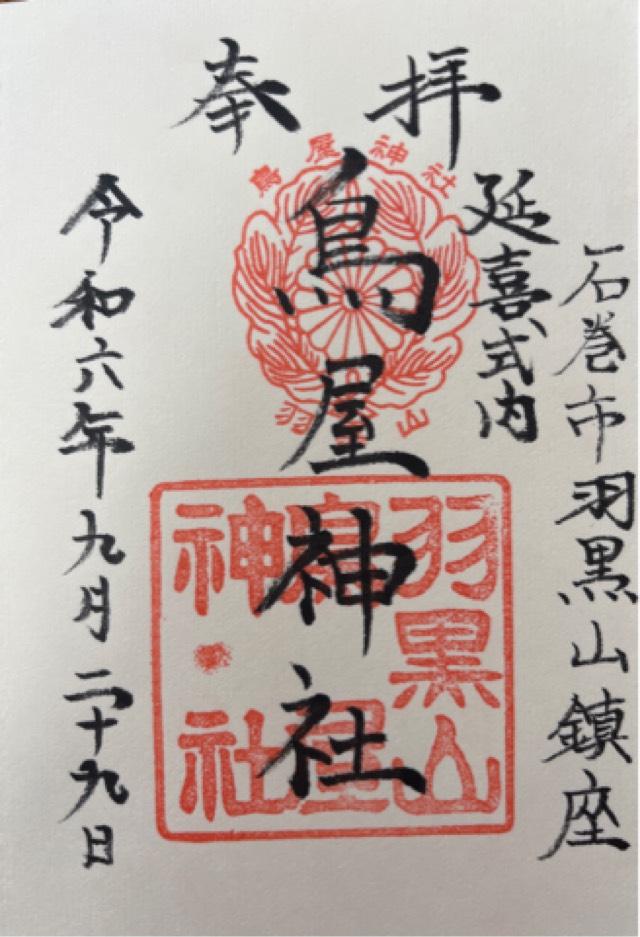 奉拝
石巻市羽黒山鎮座
延喜式内
鳥屋神社
令和六年九月二十九日
鳥屋神社
羽 山
羽黒山
鳥屋
神社